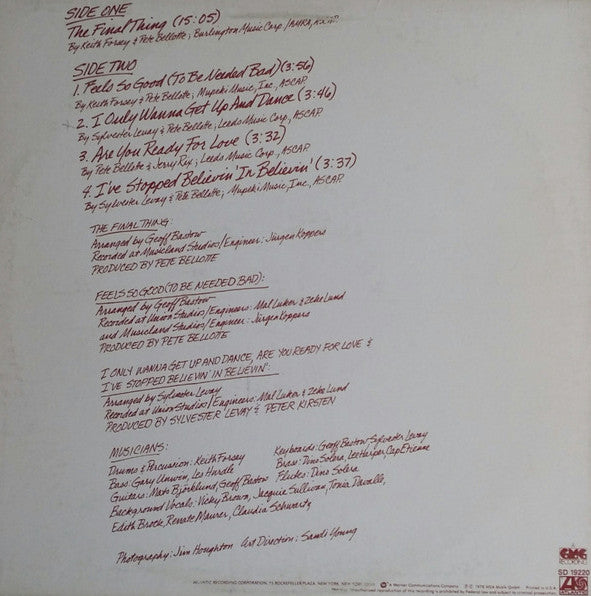 SIDE ONE
The Final Thing (15:05)
By Keith Forsey & Pete Bellotte; Burlington Music Corp./
SIDE TWO
1. Feels So Good (To Be Needed Bad) (3:56)
By Keith Forsey & Pete Bellotte; Mupeki Music, Inc., ASCAP.
2. I Only Wanna Get Up And Dance (3:46)
By Sylvester Levay & Pete Bellotte; Leeds Music Corp., ASCAP.
3. Are You Ready For Love (3:32)
By Pete Bellotte & Jerry Rix; Leeds Music Corp., ASCAP.
4. I've Stopped Believin' In Believin' (3:37)
By Sylvester Levay & Pete Bellotte; Mupeki Music, Inc., ASCAP.
THE FINAL THING:
Arranged by Geoff Bastow
Recorded at Musicland Studios/Engineer: Jürgen Koppers
PRODUCED BY PETE BELLOTTE
FEELS SO GOOD (TO BE NEEDED BAD):
Arranged by Geoff Bastow
Recorded at Union Studios/Engineers: Mal Luker & Zeke Lund
and Musicland Studios/Engineer: Jürgen Koppers
PRODUCED BY PETE BELLOTTE
I ONLY WANNA GET UP AND DANCE, ARE YOU READY FOR LOVE &
I'VE STOPPED BELIEVIN' IN BELIEVIN':
Arranged by Sylvester Levay
Recorded at Union Studios/Engineers: Mal Luker & Zeke Lund
PRODUCED BY SYLVESTER LEVAY & PETER KIRSTEN
MUSICIANS:
Drums & Percussion: Keith Forsey
Bass: Gary Unwin, Les Hurdle
Guitars: Mats Björklund, Geoff Bastow
Background Vocals: Vicky Brown, Jacquie Sullivan, Tonia Davalle,
Edith Brock, Renate Maurer, Claudia Schwartz
Keyboards: Geoff Bastow, Sylvester Levay
Brass: Dino Solera, Les Harper, Cap Etienne
Flutes: Dino Solera
Photography: Jim Houghton Art Direction: Sandi Young
ATLANTIC RECORDING CORPORATION, 75 ROCKEFELLER PLAZA, NEW YORK, NEW YORK A Warner Communications Company 1978 Printed in U.S.A.
Warning: Unauthorized reproduction of this recording is prohibited by Federal law and subject to criminal prosecution.
RECORDING
SD 19220
ATLANTIC